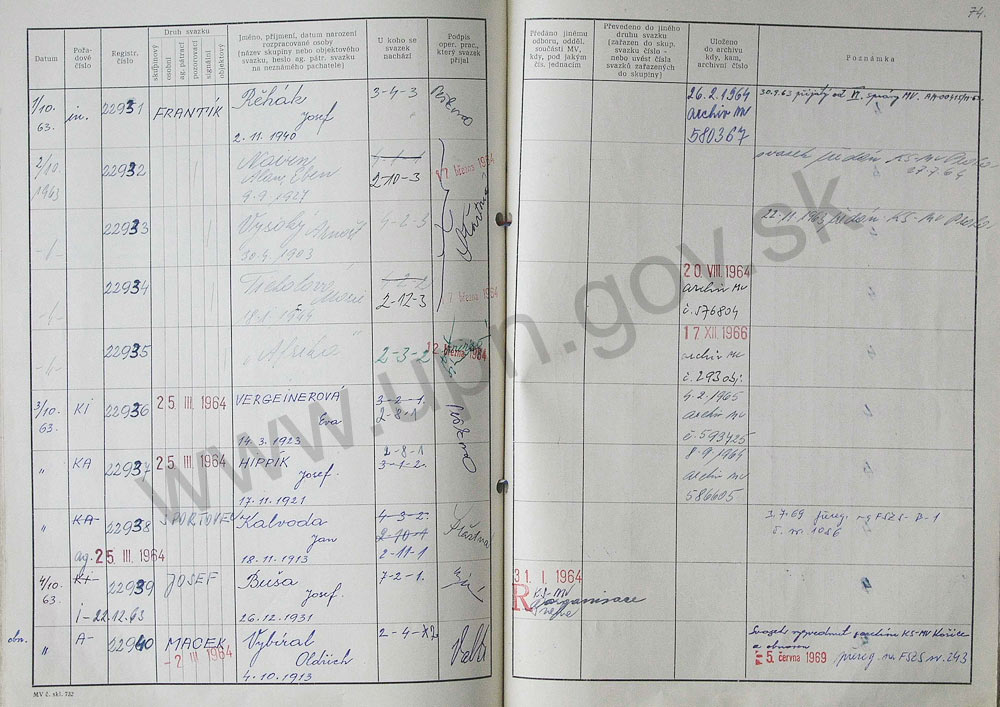 74.
Datum
Pořadové číslo
Registr. číslo
Druh svazku
skupinový
osobní
ag. pátrací
pozorovací
signální
objektový
Jméno, příjmení, datum narození
rozpracované osoby
(název skupiny nebo objektového
svazku, heslo ag. pátr. svazku
na neznámého pachatele)
U koho se
svazek
nachází
Podpis
oper. prac.,
který svazek
přijal
Předáno jinému
odboru, odděl.
součásti MV,
kdy, pod jakým
čís. jednacím
Převedeno do jiného
druhu svazku
(zařazen do skup.
svazku číslo -
nebo uvést čísla
svazků zařazených
do skupiny)
Uloženo
do archivu
kdy, kam,
archivní číslo
Poznámka
1/10. 63.
in.
22931
FRANTÍK
Řěhák
Josef
2. 11. 1940
3-4-3
26.2.1964
archiv MV
580367
30.9.63 přijatý od
správy MV.
2/10. 1963
22932
Alan, Eben
9.9.1927
4-1-1
2-10-3
7 března 1964
svazek předán KS-MV
27.7.64
22933
Vysoký Arnošt
30.9.1903
4-2-3
22.11.1963 předán KS-MV
22934
Marie
1-2-2
2-12-3
7 března 1964
20 VIII. 1964
archiv MV
č. 576804
22935
"Afrika"
2-3-2
12 března 1964
17 XII. 1966
archiv MV
č. 293 obj.
3/10. 63.
KI
22936
25 III. 1964
VERGEINEROVÁ
Eva
14. 3. 1923
3-2-1.
2-8-1
4.2.1965
archiv MV
č. 593425
"
KA
22937
25 III. 1964
HIPPÍK
Josef.
17. 11. 1921
2-8-1
3-1-2.
8.9.1964
archiv MV
586605
"
KA-
ag. 25 III. 1964
22938
SPORTOVEC
Kalvoda
Jan
18. 11. 1913
4-3-2.
2-10-4
2-11-1
Šťastná
3.7.69 přereg. na FSZS-B-1
č. nr. 1056
4/10. 63.
KI-
I-22.12.63
22939
JOSEF
Buša
Josef.
26. 12. 1931
7-2-1.
31. I. 1964
R
KS-MV
reorganisace
obn.
"
A-
22940
MACEK
-2 III 1964
Vybíral
Oldřich
4. 10. 1913
2-4-X2
Svazek vyzvednut z archivu KS-MV Košice
a obnoven
5. června 1969
přereg. na FSZS nr. 243
MV č. skl. 732
www.upn.gov.sk